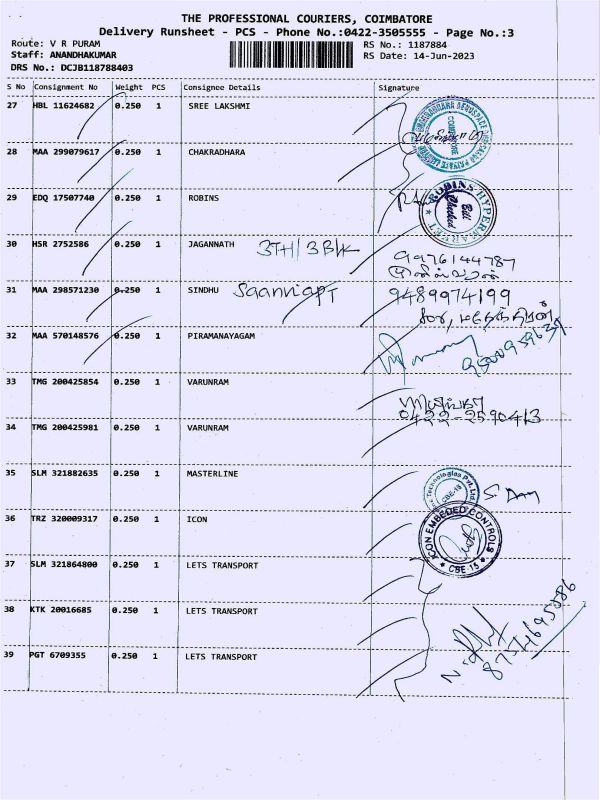 THE PROFESSIONAL COURIERS, COIMBATORE
Delivery Runsheet - PCS - Phone No.:0422-3505555 - Page No.:3
Route: V R PURAM RS No.: 1187884
Staff: ANANDHAKUMAR RS Date: 14-Jun-2023
DRS No.: DCJB118788403
S No Consignment No Weight PCS Consignee Details Signature
27 HBL 11624682 0.250 1 SREE LAKSHMI
28 MAA 299079617 0.250 1 CHAKRADHARA
29 EDQ 17507740 0.250 1 ROBINS
ROBINS HYPERMARKET
Bill Checked
30 HSR 2752586 0.250 1 JAGANNATH 3TH/3BLK
9976144787
31 MAA 298571230 0.250 1 SINDHU Saanvi apt 9489974199
32 MAA 570148576 0.250 1 PIRAMANAYAGAM
33 TMG 200425854 0.250 1 VARUNRAM
0422-2590413
34 TMG 200425981 0.250 1 VARUNRAM
35 SLM 321882635 0.250 1 MASTERLINE
Technologies Pvt.Ltd.
CBE-15
36 TRZ 320009317 0.250 1 ICON
ICON EMBEDED CONTROLS
CBE-15
37 SLM 321864800 0.250 1 LETS TRANSPORT
38 KTK 20016685 0.250 1 LETS TRANSPORT
39 PGT 6709355 0.250 1 LETS TRANSPORT